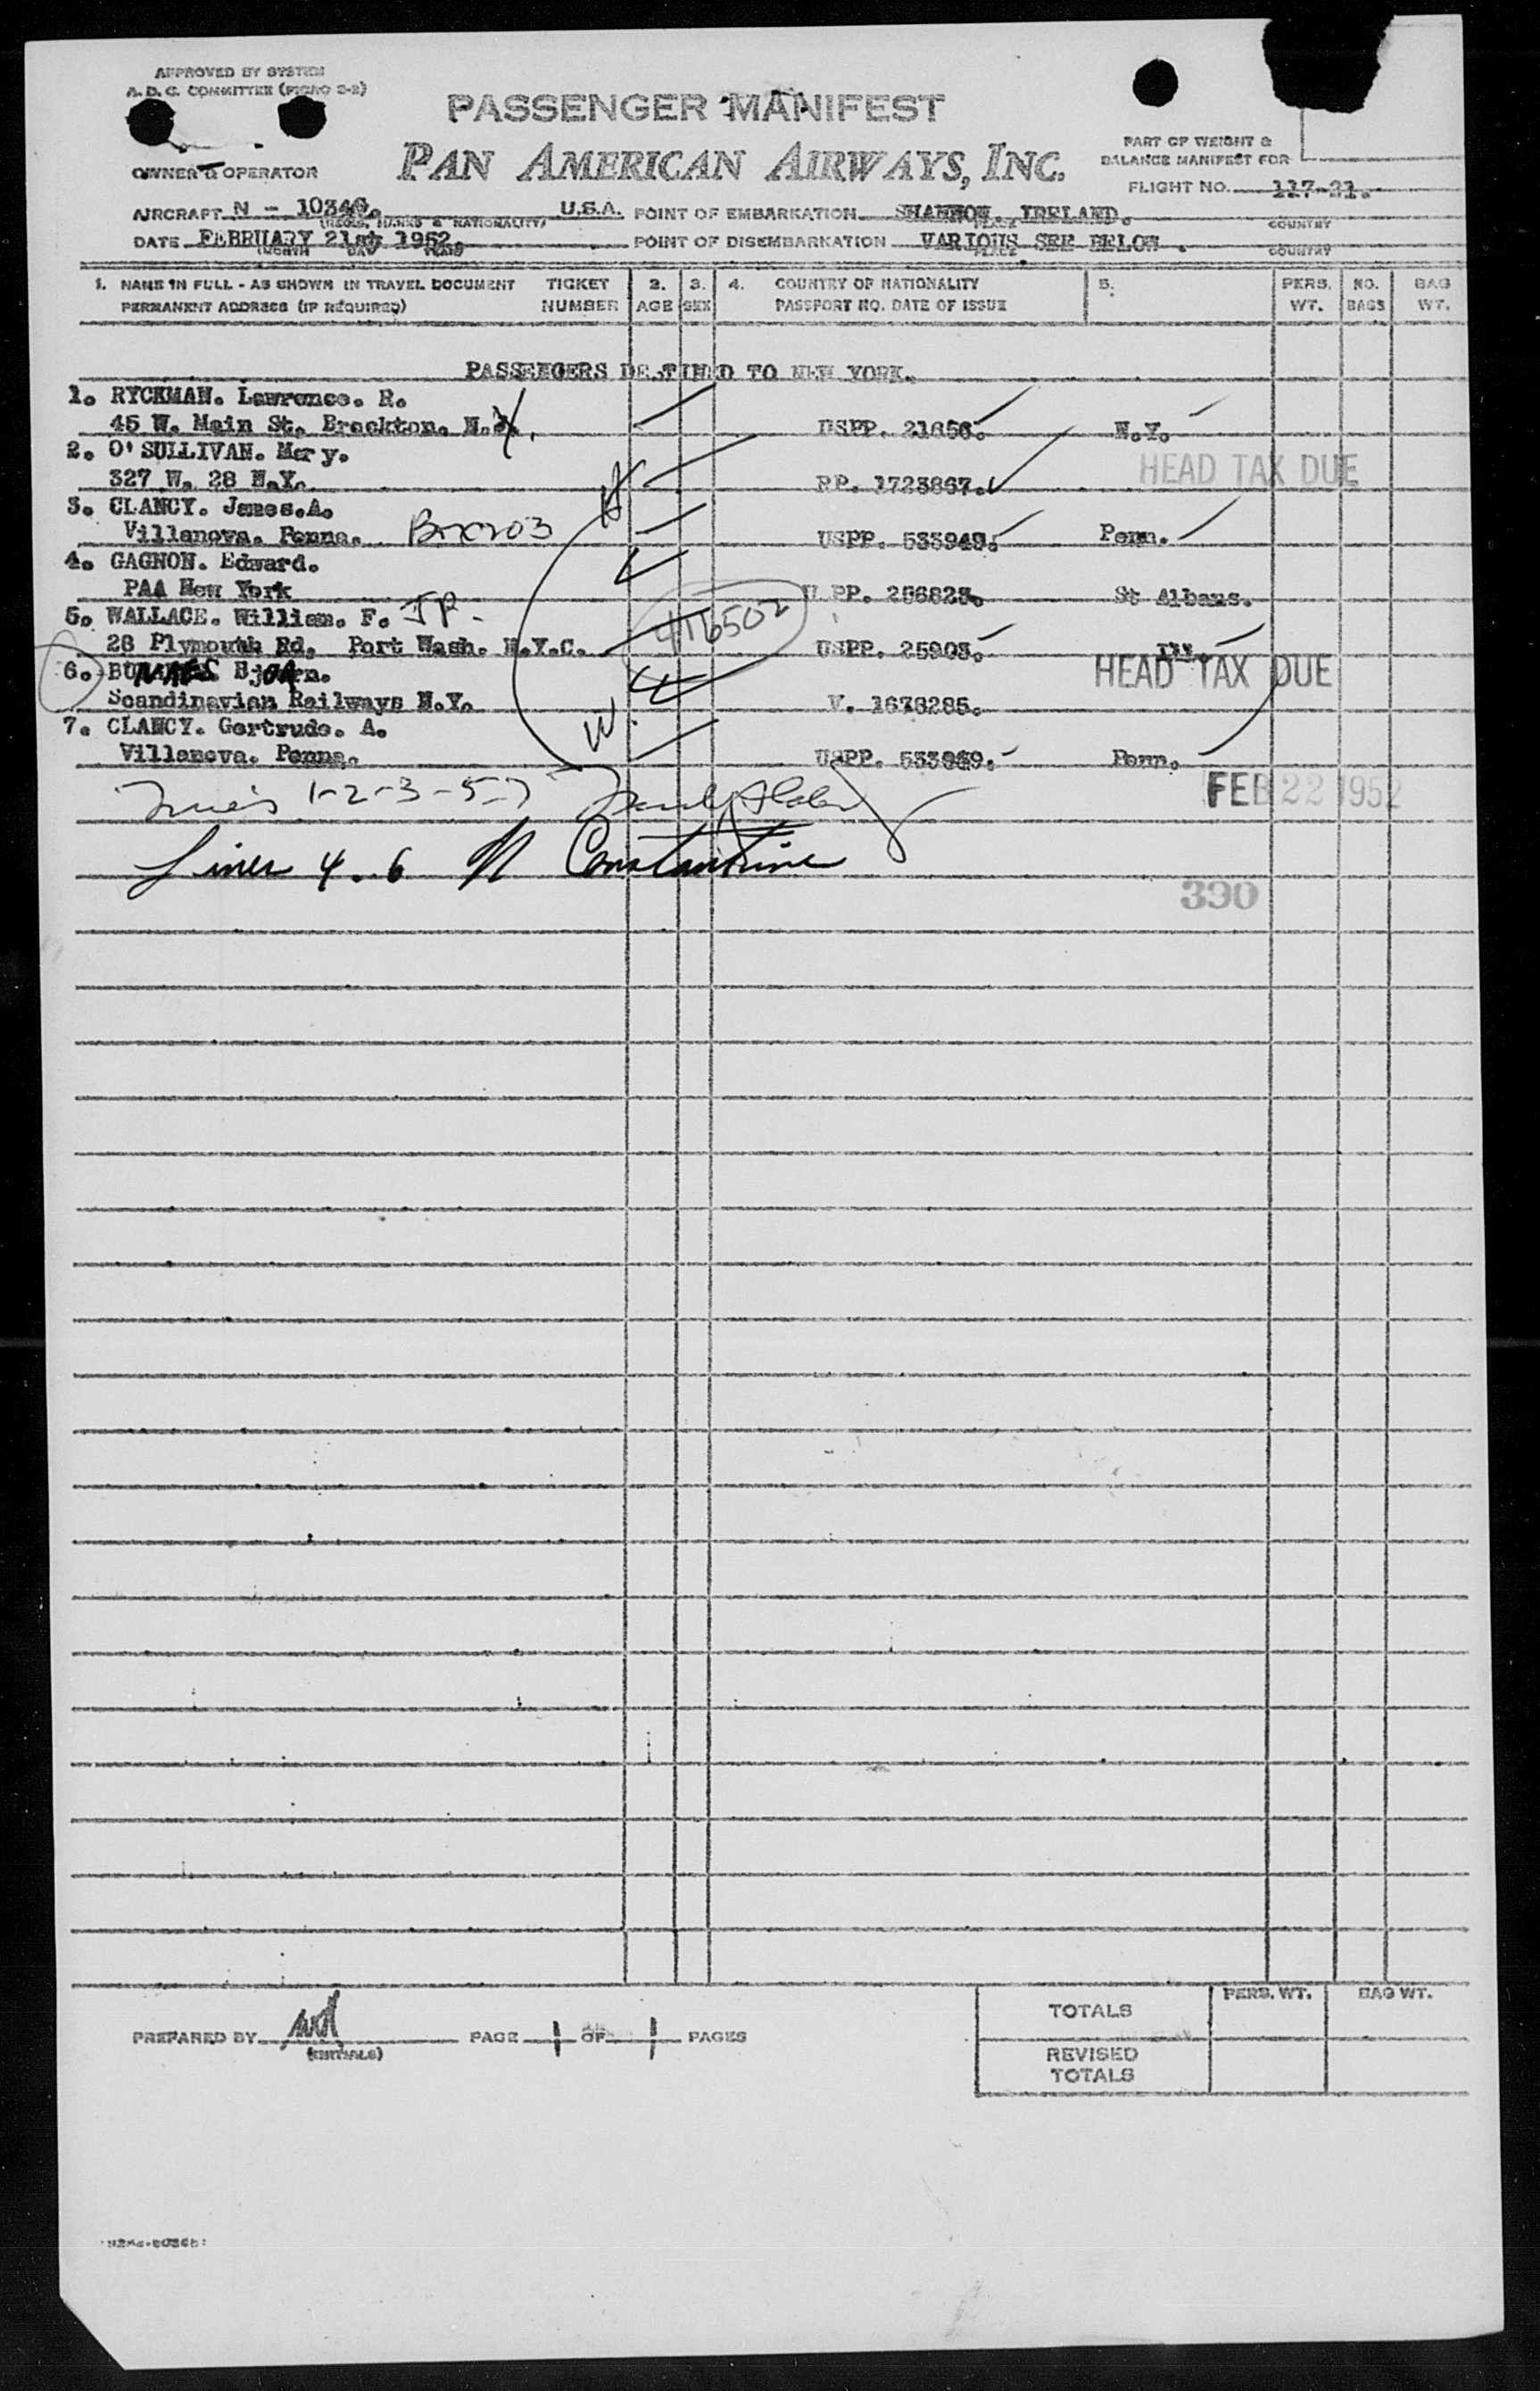 APPROVED BY SYSTEM
A.D.C. COMMITTEE
PASSENGER MANIFEST
PAN AMERICAN AIRWAYS, INC.
PART OF WEIGHT &
BALANCE MANIFEST FOR
FLIGHT NO. 117-21.
OWNER & OPERATOR
AIRCRAFT N - 10346. U.S.A. POINT OF EMBARKATION SHANNON. IRELAND.
(REGS. MARKS & NATIONALITY) PLACE COUNTRY
DATE FEBRUARY 21st 1952. POINT OF DISEMBARKATION VARIOUS SEE BELOW.
(MONTH DAY YEAR) PLACE COUNTRY
1. NAME IN FULL - AS SHOWN IN TRAVEL DOCUMENT TICKET 2. 3. 4. COUNTRY OF NATIONALITY 5. PERS. NO. BAG
PERMANENT ADDRESS (IF REQUIRED) NUMBER AGE SEX PASSPORT NO. DATE OF ISSUE WT. BAGS WT.
PASSENGERS DESTINED TO NEW YORK.
1. RYCKMAN. Lawrence. R.
45 W. Main St. Brockton. USPP. 21856. N.Y.
2. O'SULLIVAN. Mary.
327 W. 28 N.Y. PP. 1723867. HEAD TAX DUE
3. CLANCY. James.A.
Villanova. Penna. USPP. 533949. Penn.
4. GAGNON. Edward.
PAA New York PP. 256823. St Albans.
5. WALLACE. William. F. JR.
28 Plymouth Rd. Port Wash. N.Y.C. 416502 USPP. 25903.
6. HEAD TAX DUE
Scandinavian Railways N.Y. V. 1678285.
7. CLANCY. Gertrude. A.
Villanova. Penna. USPP. 533969. Penn.
1-2-3-5-7 FEB 22 1952
Lines 4.6 N Constantine
390
PREPARED BY PAGE 1 OF 1 PAGES
(INITIALS)
TOTALS PERS. WT. BAG WT.
REVISED
TOTALS